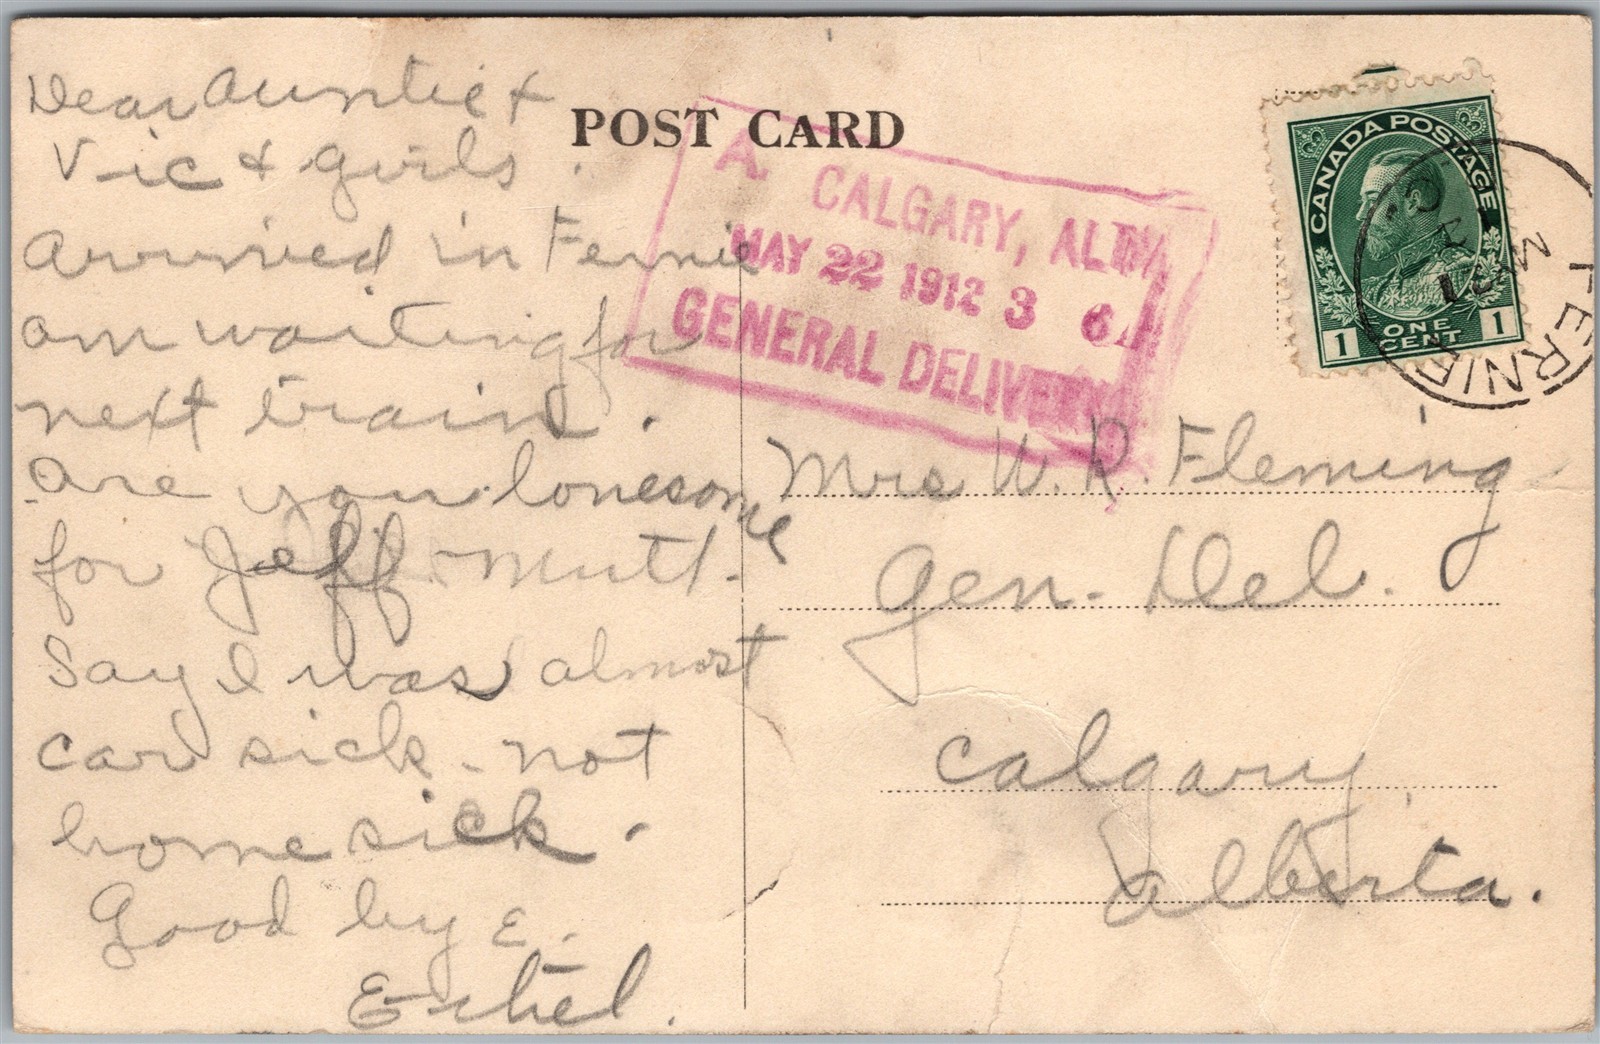 POST CARD
Dear Auntie &
Vic & girls.
Arrived in Fernie
am waiting for
next train.
Are you lonesome
for Jeff Mutt.
Say I was almost
car sick - not
home sick.
Good by e.
Ethel.
A. CALGARY, ALTA
MAY 22 1912 3 6
GENERAL DELIVERY
CANADA POSTAGE
1 ONE CENT 1
FERNIE
Mrs W. R. Fleming
Gen. Del.
Calgary,
Alberta.